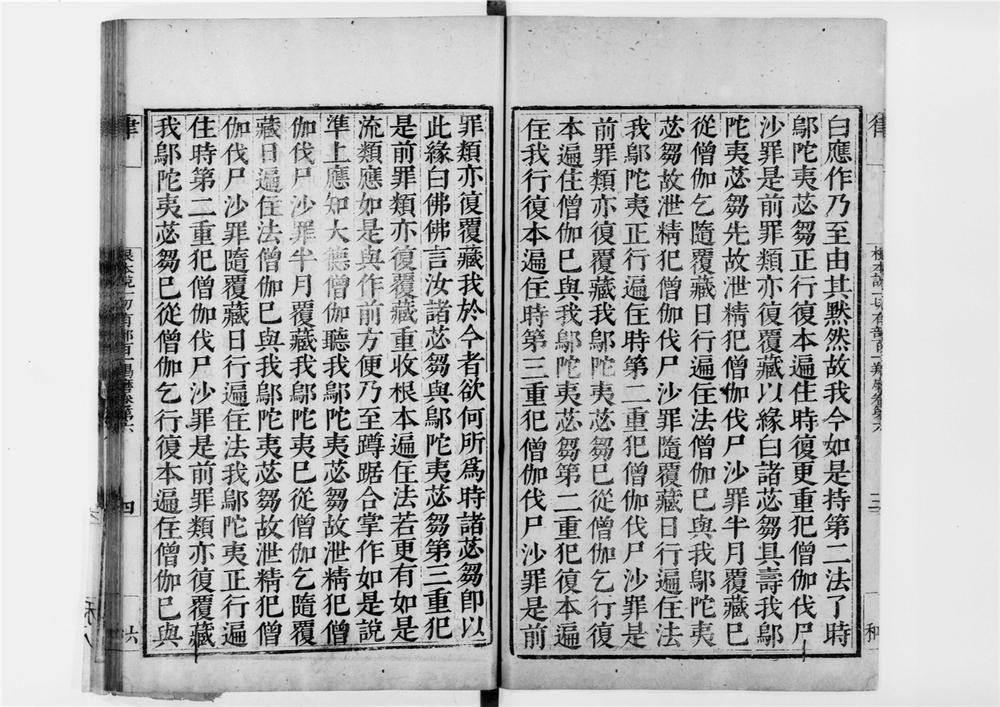 律
根本說一切有部百一羯磨卷第六
三
和
白應作乃至由其黙然故我今如是持第二法了時
鄔陀夷苾芻正行復本遍住時復更重犯僧伽伐尸
沙罪是前罪類亦復覆藏以緣白諸苾芻具壽我鄔
陀夷苾芻先故泄精犯僧伽伐尸沙罪半月覆藏已
從僧伽乞隨覆藏日行遍住法僧伽已與我鄔陀夷
苾芻故泄精犯僧伽伐尸沙罪隨覆藏日行遍住法
我鄔陀夷正行遍住時第二重犯僧伽伐尸沙罪是
前罪類亦復覆藏我鄔陀夷苾芻已從僧伽乞行復
本遍住僧伽已與我鄔陀夷苾芻第二重犯復本遍
住我行復本遍住時第三重犯僧伽伐尸沙罪是前
罪類亦復覆藏我於今者欲何所爲時諸苾芻卽以
此緣白佛佛言汝諸苾芻與鄔陀夷苾芻第三重犯
是前罪類亦復覆藏重收根本遍住法若更有如是
流類應如是與作前方便乃至蹲踞合掌作如是說
準上應知大德僧伽聽我鄔陀夷苾芻故泄精犯僧
伽伐尸沙罪半月覆藏我鄔陀夷已從僧伽乞隨覆
藏日遍住法僧伽已與我鄔陀夷苾芻故泄精犯僧
伽伐尸沙罪隨覆藏日行遍住法我鄔陀夷正行遍
住時第二重犯僧伽伐尸沙罪是前罪類亦復覆藏
我鄔陀夷苾芻已從僧伽乞行復本遍住僧伽已與
律
根本說一切有部百一羯磨卷第六
四
六